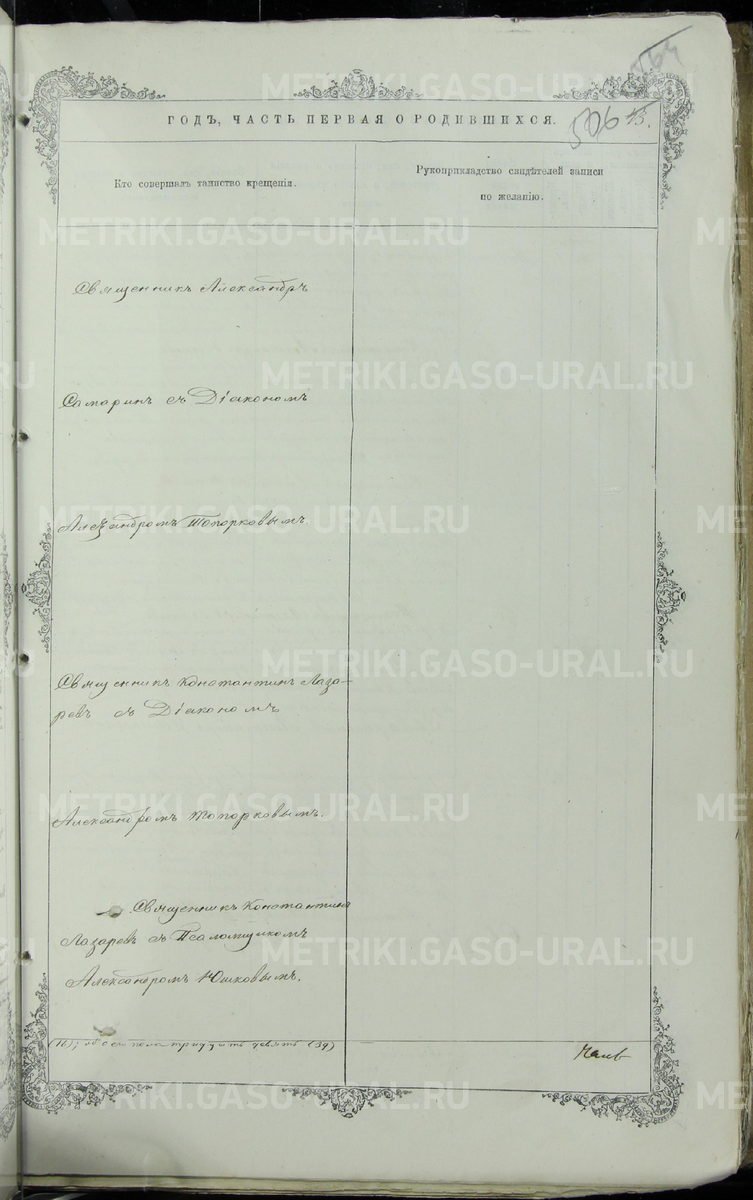 564
ГОДЪ, ЧАСТЬ ПЕРВАЯ О РОДИВШИХСЯ.
506
Кто совершалъ таинство крещенія.
Рукоприкладство свидѣтелей записи
по желанію.
Священникъ Александръ
Самаринъ съ Діакономъ
Александромъ Топорковымъ.
Священникъ Константинъ Лаза-
ревъ съ Діакономъ
Александромъ Топорковымъ.
Священникъ Константинъ
Лазаревъ съ Псаломщикомъ
Александромъ Юшковымъ.
(16); обоего пола тридцать девять (39)
METRIKI.GASO-URAL.RU